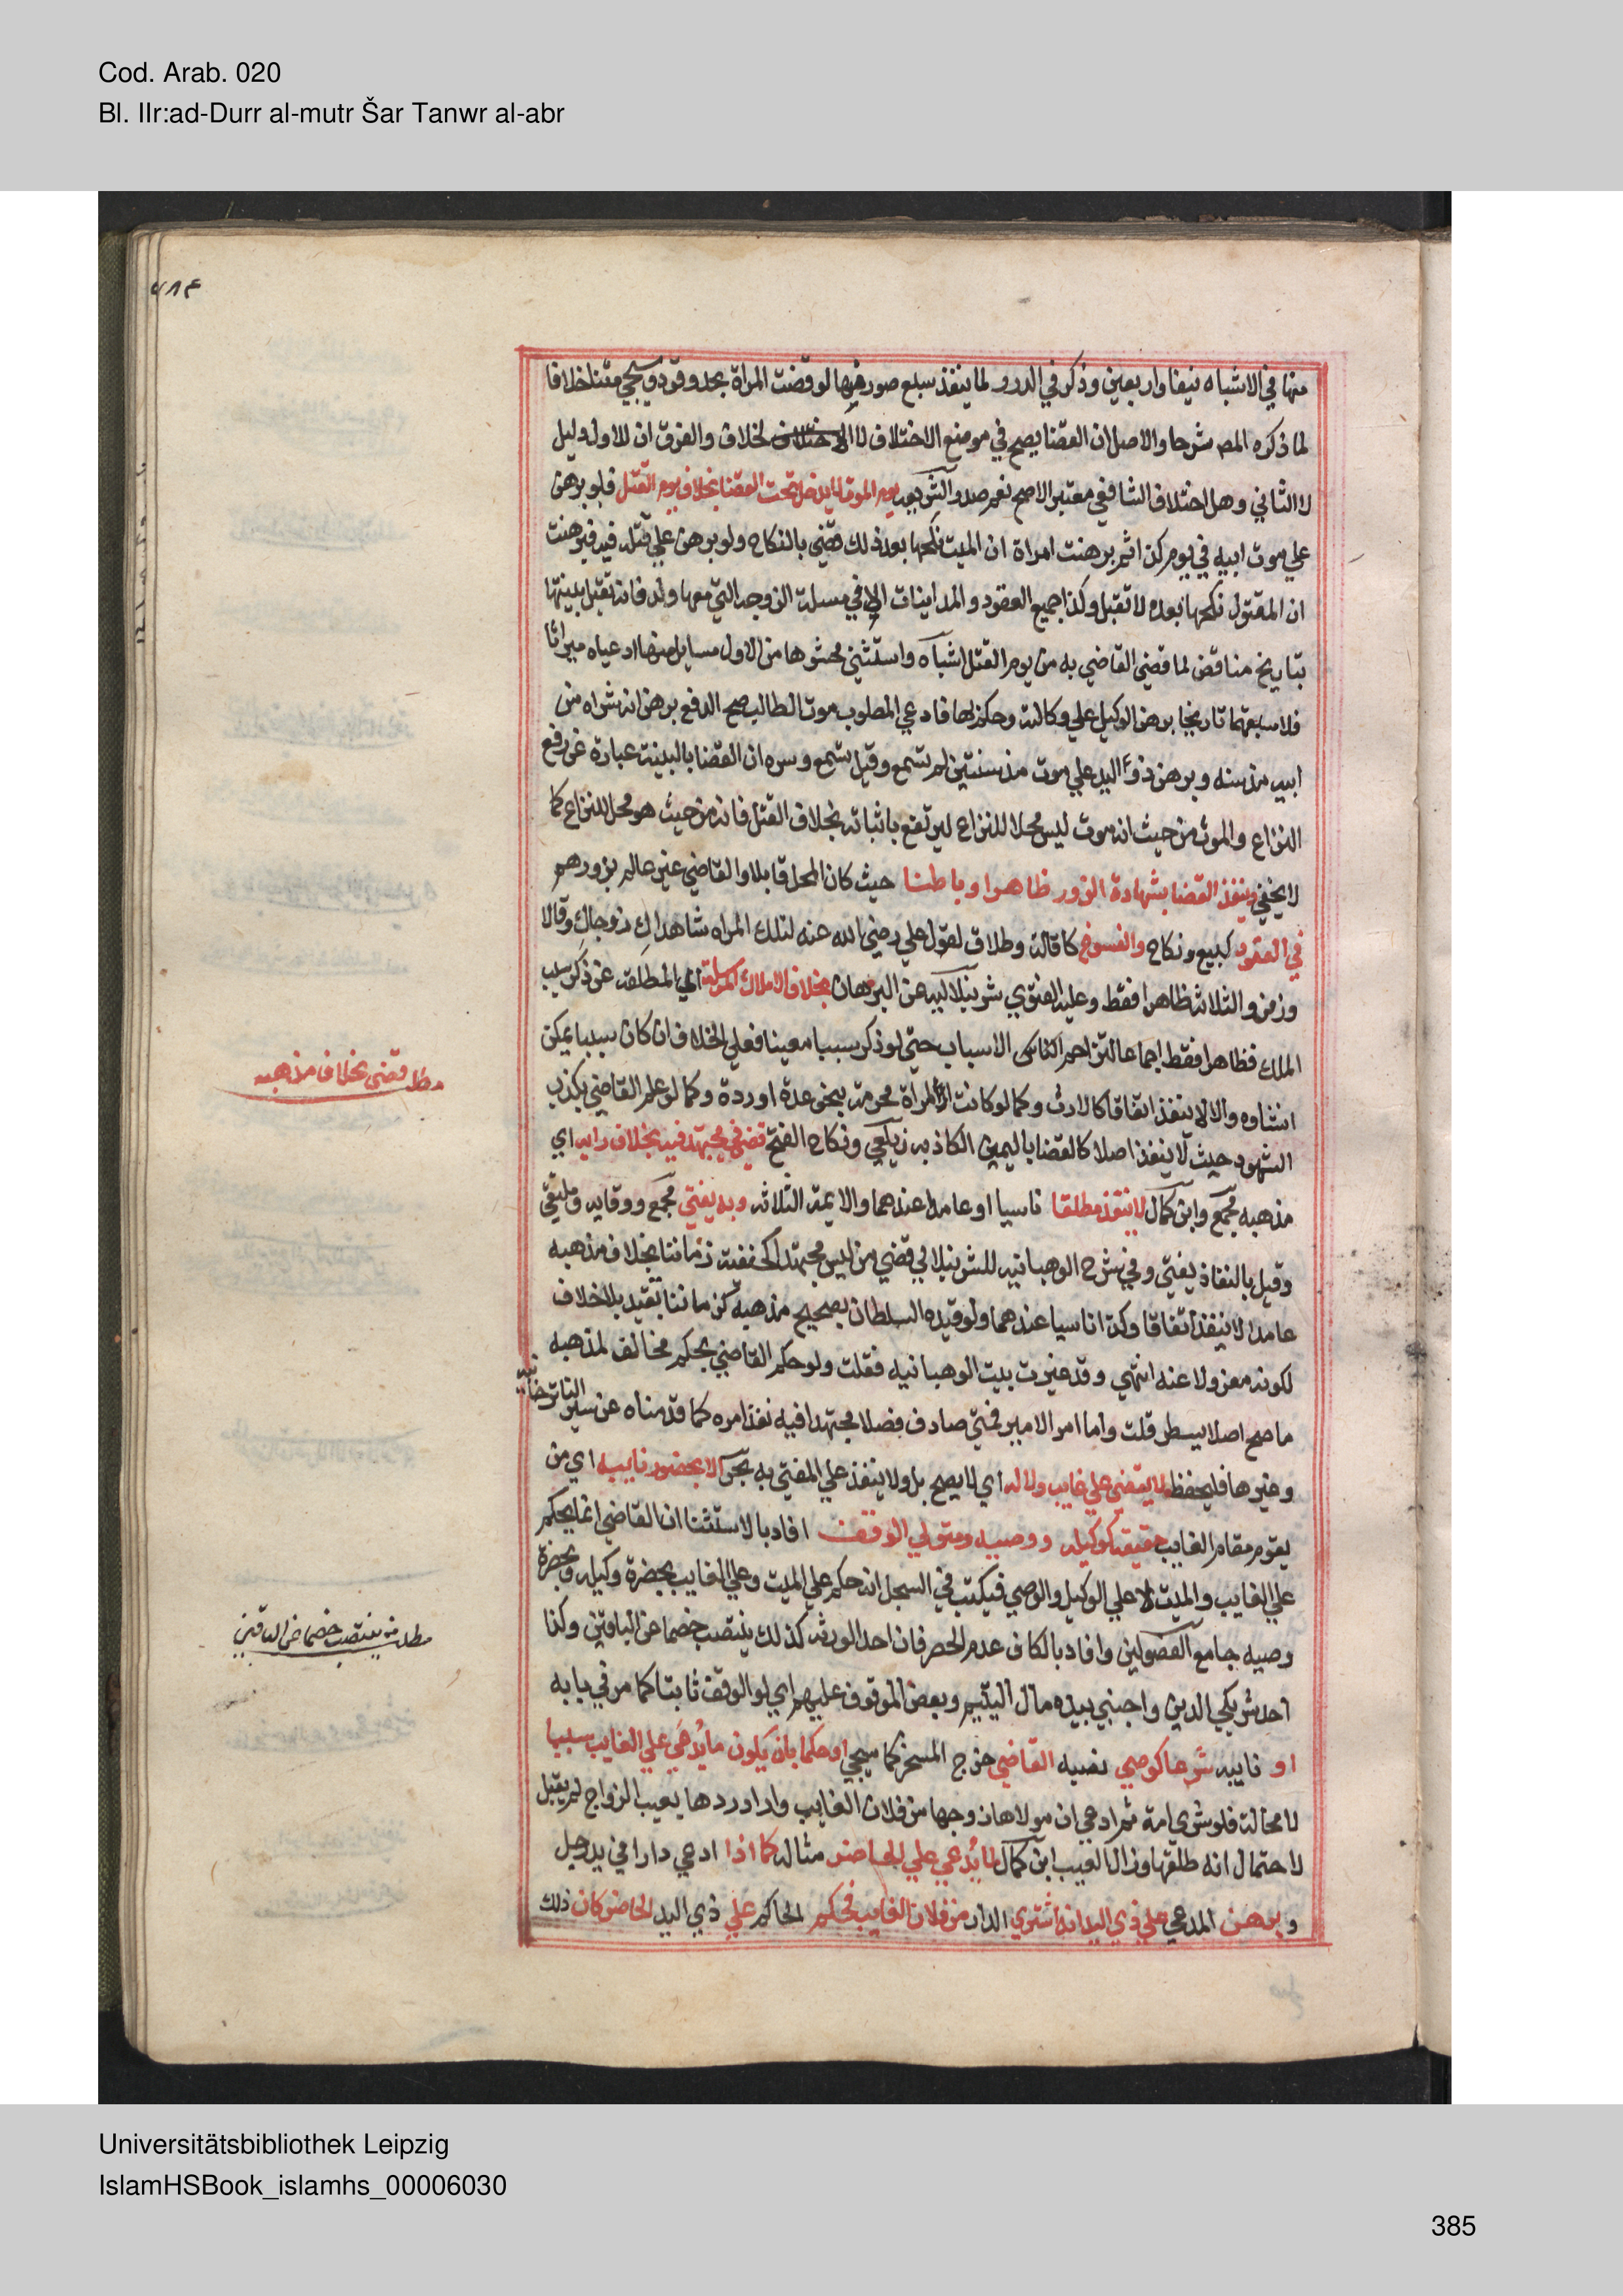 Cod. Arab. 020
Bl. IIr:ad-Durr al-mutr Šar Tanwr al-abr
منها في الاشباه نيفا واربعين وذكر في الدرر لما ينفذ سبع صور منها لو قضت المراة بحد وقود وسيجي متنا خلافا
لما ذكره المص شرحا والاصل ان القضا يصح في موضع الاختلاف لا الخلاف والفرق ان للاول دليل
لا الثاني وهل اختلاف الشافعي معتبر الاصح نعم صدر الشريعه يوم الموت لا يدخل تحت القضا بخلاف يوم القتل فلو برهن
علي موت ابيه في يوم كذا ثم برهنت امراة ان الميت نكحها بعد ذلك قضي بالنكاح ولو برهن علي قتله فيه فبرهنت
ان المقتول نكحها بعده لا تقبل وكذا جميع العقود والمداينات الا في مسلة الزوجه التي معها ولد فانه تقبل بينتها
بتاريخ مناقض لما قضي القاضي به من يوم القتل اشباه واستثني محشوها من الاول مسايل منها ادعياه ميراثا
فلاسبقهما تاريخا برهن الوكيل علي وكالته وحكم بها فادعي المطلوب موت الطالب صح الدفع برهن انه شراه من
ابيه مذ سنه وبرهن ذو اليد علي موت مذ سنتين لم تسمع وقيل تسمع وسره ان القضا بالبينة عبارة عن رفع
النزاع والموت من حيث انه موت ليس محلا للنزاع ليرتفع باثباته بخلاف القتل فانه من حيث هو محل للنزاع كما
لا يخفي وينفذ القضا بشهادة الزور ظاهرا وباطنا حيث كان المحل قابلا والقاضي غير عالم بزورهم
في العقود كبيع ونكاح والفسوخ كاقالة وطلاق لقول علي رضي الله عنه لتلك المراه شاهداك زوجاك وقالا
وزفر والثلاثة ظاهرا فقط وعليه الفتوي شرنبلاليه عن البرهان بخلاف الاملاك المرسلة اي المطلقه عن ذكر سبب
الملك فظاهرا فقط اجماعا لتزاحم الاسباب حتي لو ذكر سببا معينا فعلي الخلاف ان كان سببا يمكن
انشاوه والا لا ينفذ اتفاقا كالارث وكما لو كانت المراة محرمة بنحو عدة او ردة وكما لو علم القاضي بكذب
الشهود حيث لا ينفذ اصلا كالقضا باليمين الكاذبه زيلعي ونكاح الفتح قضي في مجتهد فيه بخلاف رايه اي
مذهبه مجمع وابن كمال لا ينفذ مطلقا ناسيا او عامدا عندهما والايمة الثلاثه وبه يفتي مجمع ووقايه وملتقي
وقيل بالنفاذ يفتي وفي شرح الوهبانيه للشرنبلالي قضي من ليس مجتهدا كحنفية زماننا بخلاف مذهبه
عامدا لا ينفذ اتفاقا وكذا ناسيا عندهما ولو قيده السلطان بصحيح مذهبه كزماننا تقيد بلا خلاف
لكونه معزولا عنه انتهي وقد غيرت بيت الوهبانيه فقلت ولو حكم القاضي بحكم مخالف لمذهبه
ما صح اصلا يسطر قلت واما امر الامير فمتي صادف فصلا مجتهدا فيه نفذ امره كما قدمناه عن سير التاترخانيه
وغيرها فليحفظ لا يقضي علي غايب ولا له اي لا يصح بل ولا ينفذ علي المفتي به بحر الا بحضور نايبه اي من
يقوم مقام الغايب حقيقة كوكيله ووصيه ومتولي الوقف افاد بالاستثنا ان القاضي انما يحكم
علي الغايب والميت لا علي الوكيل والوصي فيكتب في السجل انه حكم علي الميت وعلي الغايب بحضرة وكيله وبحضرة
وصيه جامع الفصولين وافاد بالكاف عدم الحصر فان احد الورثه كذلك ينتصب خصما عن الباقين وكذا
احد شريكي الدين واجنبي بيده مال اليتيم وبعض الموقوف عليهم اي لو الوقف ثابتا كما مر في بابه
او نايبه شرعا كوصي نصبه القاضي خرج المسخر كما سيجي او حكما بان يكون ما يدعي علي الغايب سببا
لا محالة فلو شري امة ثم ادعي ان مولاها زوجها من فلان الغايب واراد ردها بعيب الزواج لم يقبل
لاحتمال انه طلقها وزال العيب ابن كمال لما يدعي علي الحاضر مثاله كما اذا ادعي دارا في يد رجل
وبرهن المدعي علي ذي اليد انه اشتري الدار من فلان الغايب فحكم الحاكم علي ذي اليد الحاضر كان ذلك
مطلب قضي بخلاف مذهبه
مطلب من ينتصب خصما عن الباقين
Universitätsbibliothek Leipzig
IslamHSBook_islamhs_00006030
385